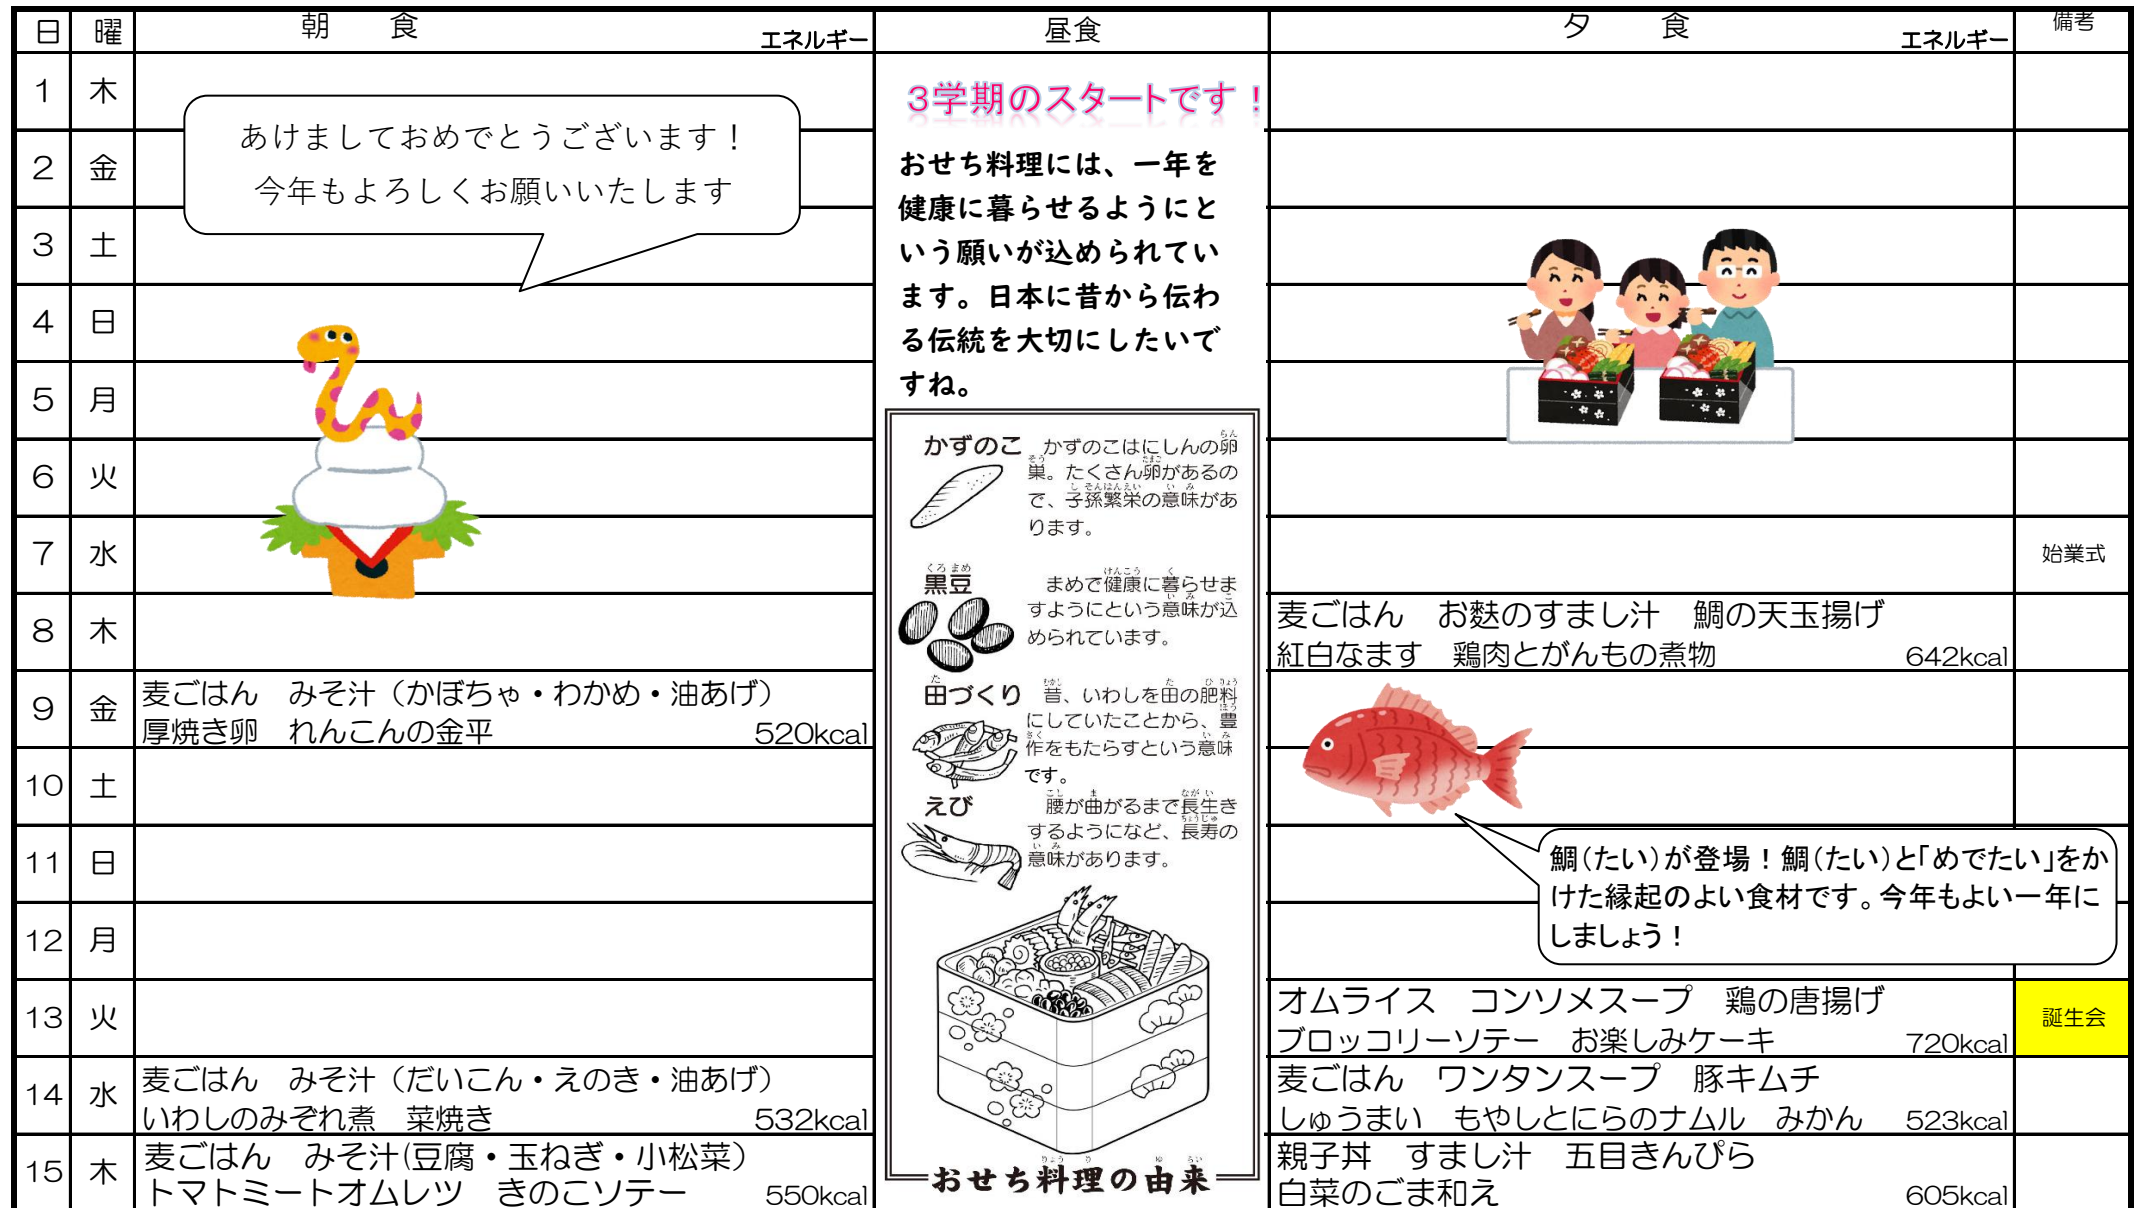 日 曜 朝 食 エネルギー 昼食 夕 食 エネルギー 備考
1 木
2 金
3 土
4 日
5 月
6 火
7 水 始業式
8 木 麦ごはん お麩のすまし汁 鯛の天玉揚げ
紅白なます 鶏肉とがんもの煮物 642kcal
9 金 麦ごはん みそ汁（かぼちゃ・わかめ・油あげ）
厚焼き卵 れんこんの金平 520kcal
10 土
11 日
12 月
13 火 オムライス コンソメスープ 鶏の唐揚げ
ブロッコリーソテー お楽しみケーキ 720kcal 誕生会
14 水 麦ごはん みそ汁（だいこん・えのき・油あげ）
いわしのみぞれ煮 菜焼き 532kcal
麦ごはん ワンタンスープ 豚キムチ
しゅうまい もやしとにらのナムル みかん 523kcal
15 木 麦ごはん みそ汁(豆腐・玉ねぎ・小松菜）
トマトミートオムレツ きのこソテー 550kcal
親子丼 すまし汁 五目きんぴら
白菜のごま和え 605kcal
あけましておめでとうございます！
今年もよろしくお願いいたします
3学期のスタートです！
おせち料理には、一年を
健康に暮らせるようにと
いう願いが込められてい
ます。日本に昔から伝わ
る伝統を大切にしたいで
すね。
かずのこ かずのこはにしんの卵
巣。たくさん卵があるの
で、子孫繁栄の意味があ
ります。
黒豆 まめで健康に暮らせま
すようにという意味が込
められています。
田づくり 昔、いわしを田の肥料
にしていたことから、豊
作をもたらすという意味
です。
えび 腰が曲がるまで長生き
するようになど、長寿の
意味があります。
おせち料理の由来
鯛（たい）が登場！鯛（たい）と「めでたい」をか
けた縁起のよい食材です。今年もよい一年に
しましょう！